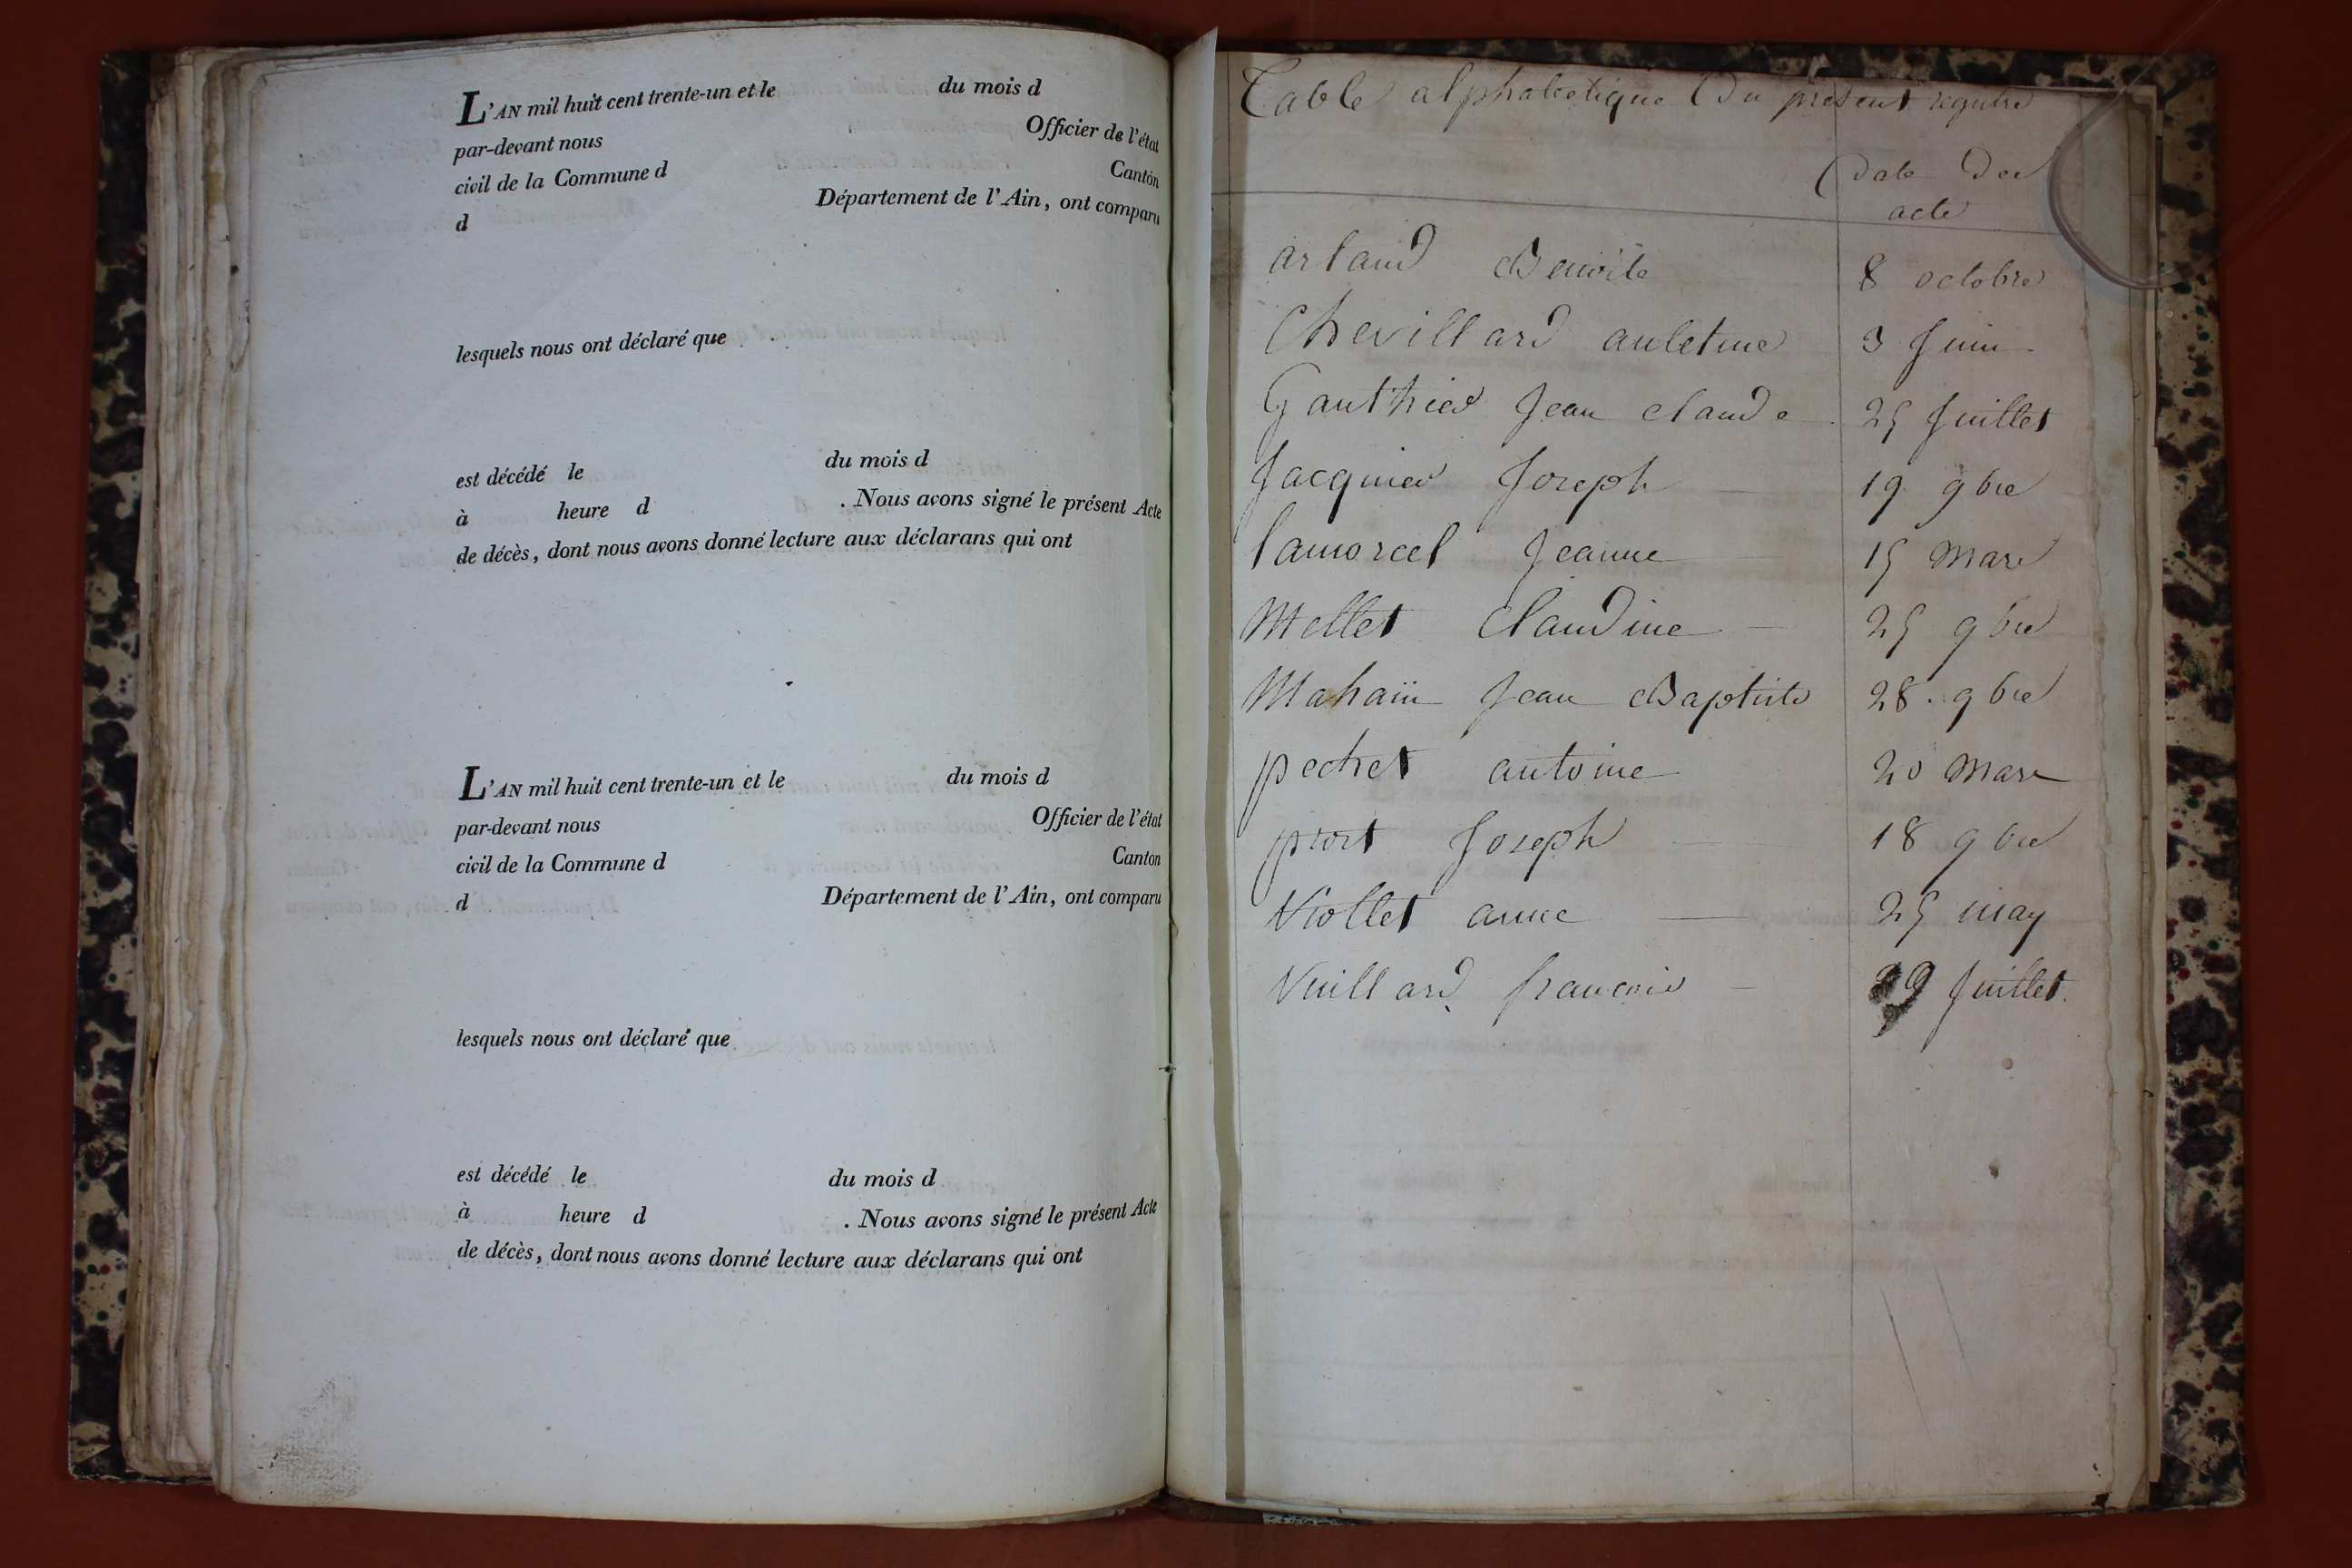 L'AN mil huit cent trente-un et le du mois d
par-devant nous Officier de l'état
civil de la Commune d Canton
d Département de l'Ain, ont comparu
lesquels nous ont déclaré que
est décédé le du mois d
à heure d . Nous avons signé le présent Acte
de décès, dont nous avons donné lecture aux déclarans qui ont
L'AN mil huit cent trente-un et le du mois d
par-devant nous Officier de l'état
civil de la Commune d Canton
d Département de l'Ain, ont comparu
lesquels nous ont déclaré que
est décédé le du mois d
à heure d . Nous avons signé le présent Acte
de décès, dont nous avons donné lecture aux déclarans qui ont
Table alphabetique Du present registre
Date Des
acte
arland Benoite 8 octobre
Chevillard 3 Juin
Gauthier Jean claude 25 Juillet
Jacquier Joseph 19 9bre
lamorcel Jeanne 15 Mars
Mellet Claudine 25 9bre
Mahaïn Jean Baptiste 28 9bre
pechet antoine 20 Mars
prost Joseph 18 9bre
Viollet anne 25 may
Vuillard francois Juillet